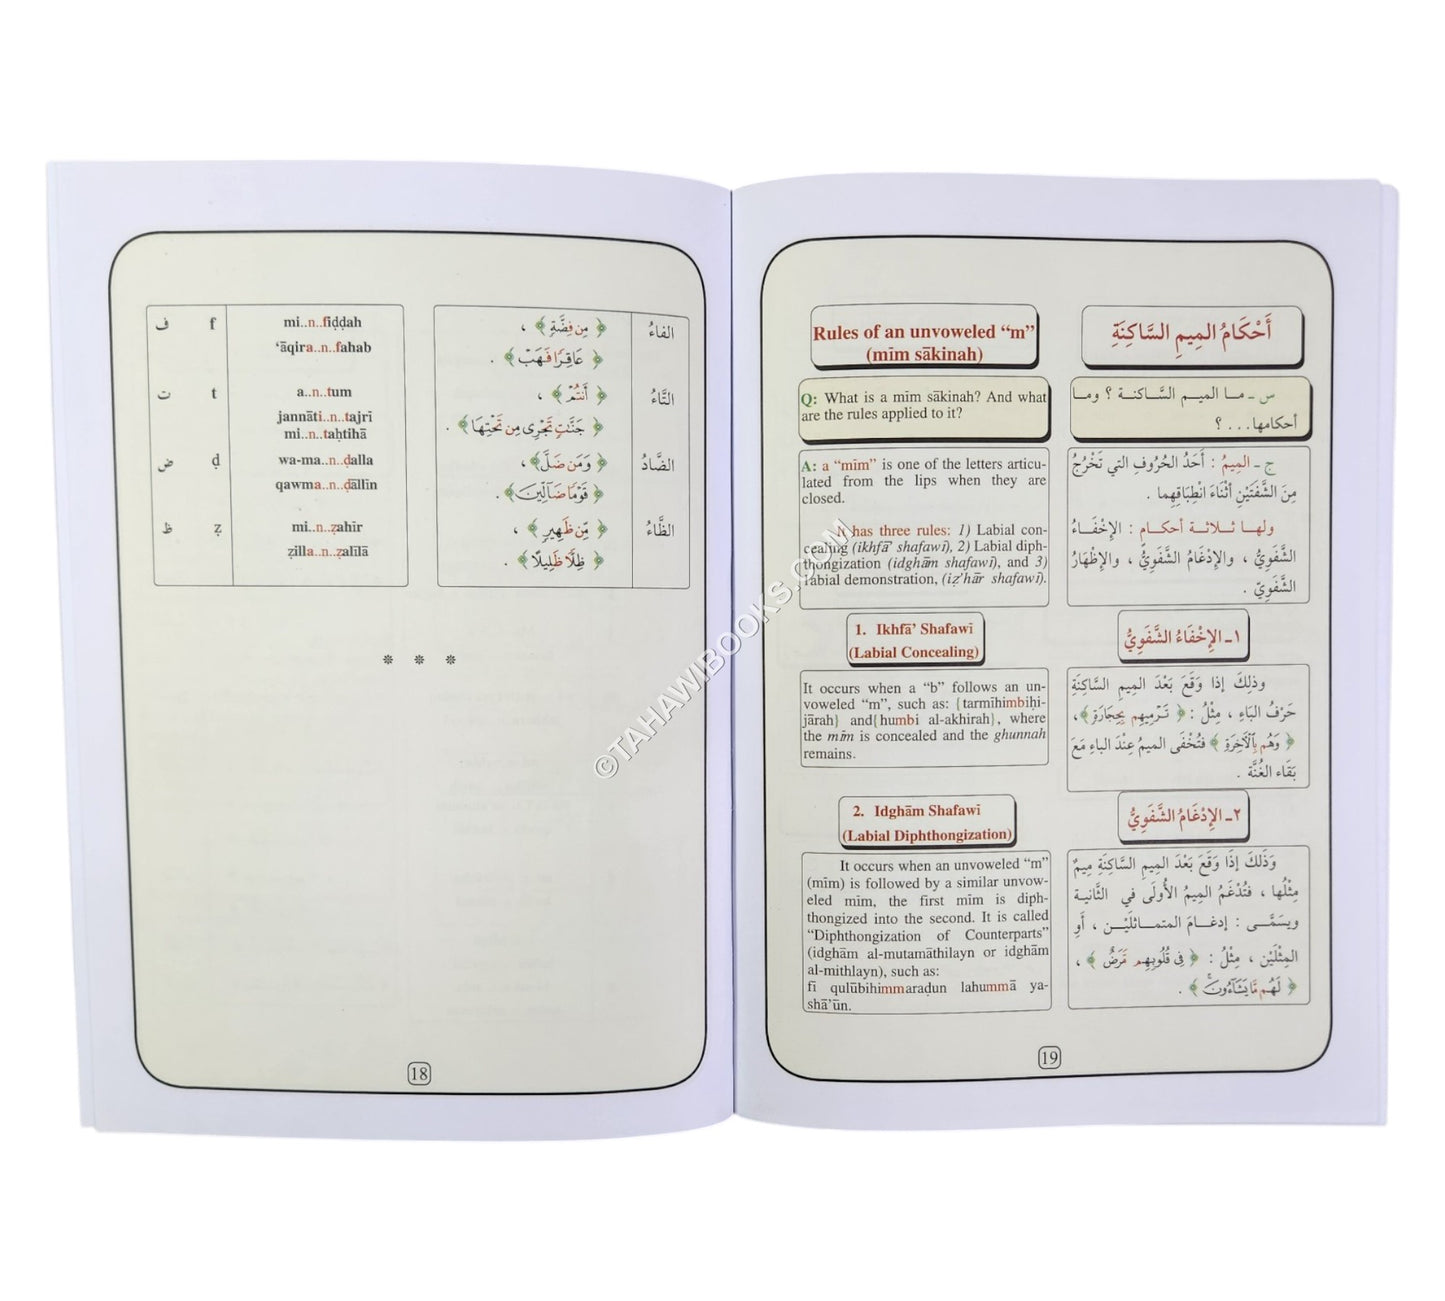 ف f mi..n..fiḍḍah
‘āqira..n..fahab
ت t a..n..tum
jannāti..n..tajrī
mi..n..taḥtihā
ض ḍ wa-ma..n..ḍalla
qawma..n..ḍāllīn
ظ ẓ mi..n..ẓahīr
ẓilla..n..ẓalīlā
الفاءُ ﴿ مِن فِضَّةٍ ﴾ ،
﴿ عَاقِرًا فَهَبْ ﴾ .
التَّاءُ ﴿ أَنتُمْ ﴾ ،
﴿ جَنَّتٍ تَجْرِى مِن تَحْتِهَا ﴾ .
الضَّادُ ﴿ وَمَن ضَلَّ ﴾ ،
﴿ قَوْمًا ضَآلِّينَ ﴾ .
الظَّاءُ ﴿ مِّن ظَهِيرٍ ﴾ ،
﴿ ظِلًّا ظَلِيلًا ﴾ .
* * *
18
Rules of an unvoweled “m”
(mīm sākinah)
Q: What is a mīm sākinah? And what
are the rules applied to it?
A: a “mīm” is one of the letters articu-
lated from the lips when they are
closed.
It has three rules: 1) Labial con-
cealing (ikhfā’ shafawī), 2) Labial diph-
thongization (idghām shafawī), and 3)
labial demonstration, (iẓ’hār shafawī).
1. Ikhfā’ Shafawī
(Labial Concealing)
It occurs when a “b” follows an un-
voweled “m”, such as: {tarmīhimbiḥi-
jārah} and{humbi al-akhirah}, where
the mīm is concealed and the ghunnah
remains.
2. Idghām Shafawī
(Labial Diphthongization)
It occurs when an unvoweled “m”
(mīm) is followed by a similar unvow-
eled mīm, the first mīm is diph-
thongized into the second. It is called
“Diphthongization of Counterparts”
(idghām al-mutamāthilayn or idghām
al-mithlayn), such as:
fī qulūbihimmaraḍun lahummā ya-
shā’ūn.
أَحْكَامُ المِيمِ السَّاكِنَةِ
س ـ مـا الميـم السَّاكنـة ؟ ومـا
أحكامها... ؟
ج ـ المِيمُ : أَحَدُ الحُرُوفِ التي تَخْرُجُ
مِنَ الشَّفَتَيْنِ أَثْنَاءَ انْطِبَاقِهِما .
ولهـا ثـلاثـة أحكـامٍ : الإخْفَـاءُ
الشَّفَوِيُّ ، والإدْغَامُ الشَّفَوِيُّ ، والإظْهَارُ
الشَّفَوِيّ .
١ـ الإخْفَاءُ الشَّفَوِيُّ
وذلِكَ إذا وَقَعَ بَعْدَ المِيمِ السَّاكِنَةِ
حَرْفُ البَاءِ ، مِثْلُ : ﴿ تَرْمِيهِم بِحِجَارَةٍ ﴾ ،
﴿ وَهُم بِالْآخِرَةِ ﴾ فَتُخْفَى الميمُ عِنْدَ الباءِ مَعَ
بَقَاءِ الغُنَّة .
٢ـ الإدْغَامُ الشَّفَوِيُّ
وَذَلكَ إذَا وَقَعَ بَعْدَ المِيمِ السَّاكِنَةِ مِيمٌ
مِثْلُها ، فَتُدْغَمُ المِيمُ الأُولَى في الثَّانية
ويسَمَّـى : إدغـامَ المتمـاثلَيْـن ، أَوِ
المِثْلَيْنِ ، مِثْلُ : ﴿ فِى قُلُوبِهِم مَّرَضٌ ﴾ ،
﴿ لَهُم مَّا يَشَآءُونَ ﴾ .
19
©TAHAWIBOOKS.COM